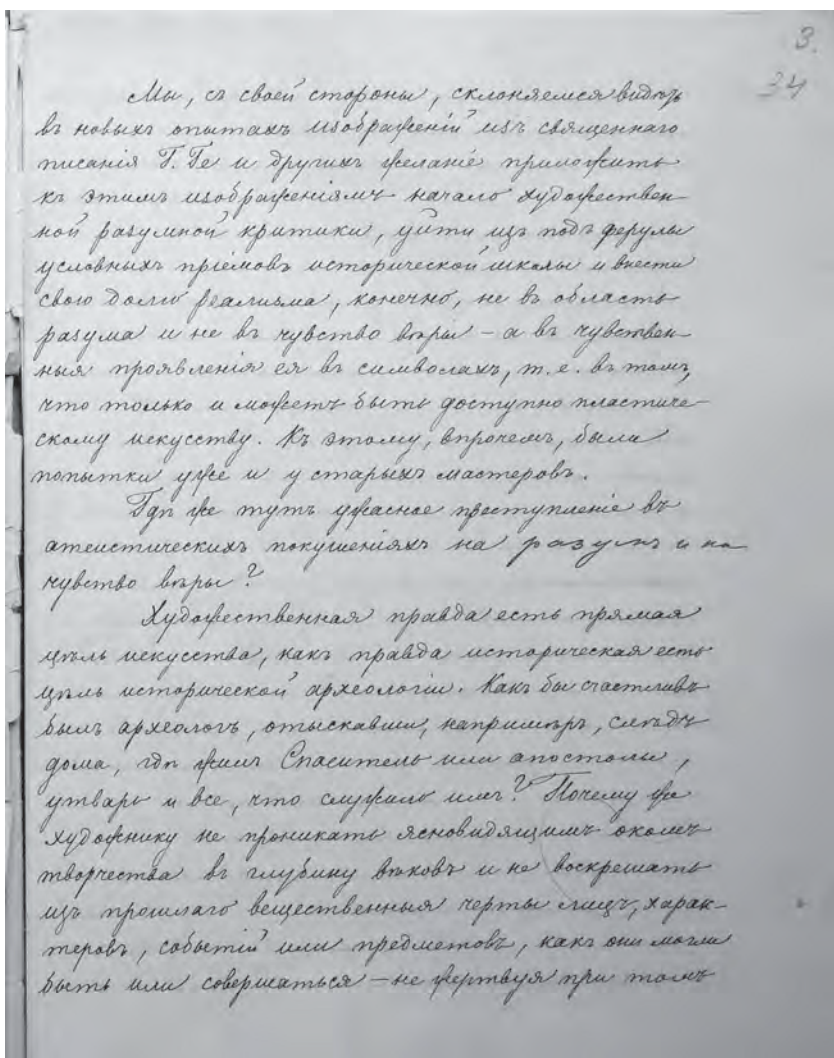 3.
34
Мы, съ своей стороны, склоняемся видѣть
въ новыхъ опытахъ изображеній изъ священнаго
писанія Г. Ге и другихъ желаніе приложить
къ этимъ изображеніямъ начало художествен-
ной разумной критики, уйти изъ подъ ферулы
условныхъ пріемовъ исторической школы и внести
свою долю реализма, конечно, не въ область
разума и не въ чувство вѣры – а въ чувствен-
ныя проявленія ея въ символахъ, т. е. въ томъ,
что только и можетъ быть доступно пластиче-
скому искусству. Къ этому, впрочемъ, были
попытки уже и у старыхъ мастеровъ.
Гдѣ же тутъ ужасное преступленіе въ
атеистическихъ покушеніяхъ на разумъ и на
чувство вѣры?
Художественная правда есть прямая
цѣль искусства, какъ правда историческая есть
цѣль исторической археологіи. Какъ бы счастливъ
былъ археологъ, отыскавши, напримѣръ, слѣды
дома, гдѣ жилъ Спаситель или апостолы,
утварь и все, что служило имъ? Почему же
художнику не проникать ясновидящимъ окомъ
творчества въ глубину вѣковъ и не воскрешать
изъ прошлаго вещественныя черты лицъ, харак-
теровъ, событій или предметовъ, какъ они могли
быть или совершаться – не жертвуя при томъ